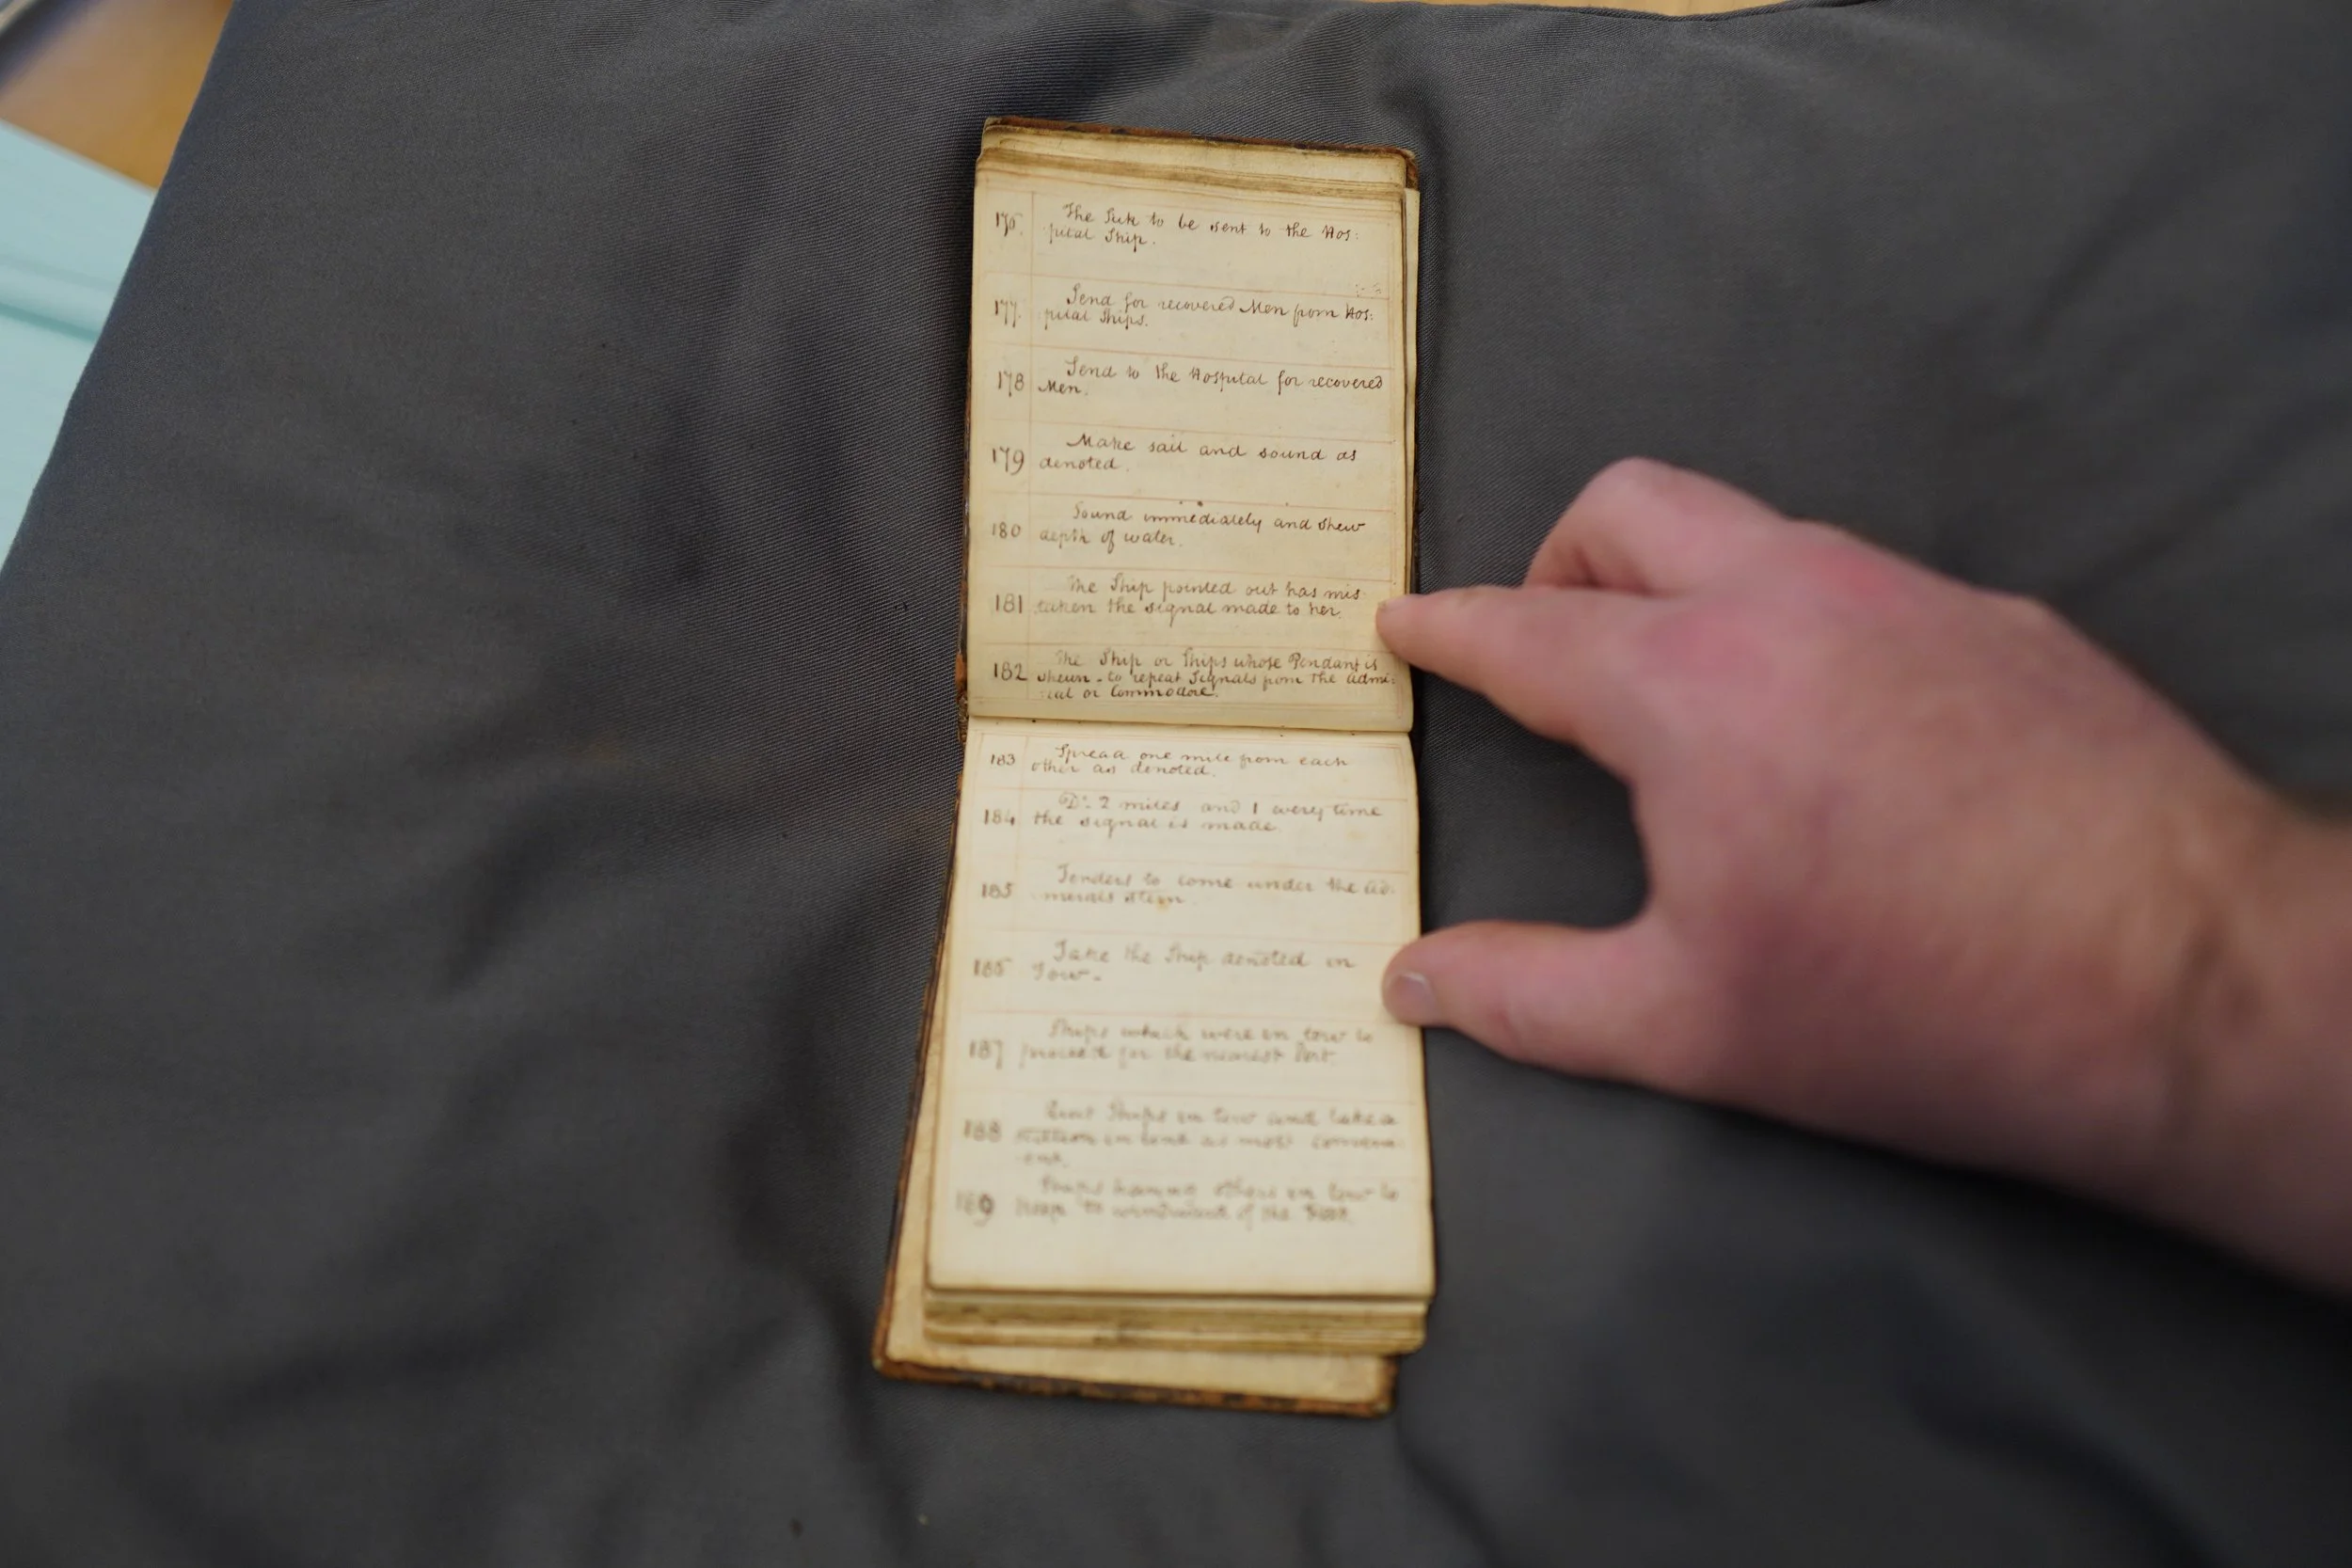 176. The Sick to be sent to the Hos:
pital Ship.
177. Send for recovered Men from Hos:
pital Ships.
178 Send to the Hospital for recovered
Men.
179 Make sail and sound as
denoted.
180 Sound immediately and shew
depth of water.
181 The Ship pointed out has mis
taken the signal made to her.
182 The Ship or Ships whose Pendant is
shewn - to repeat Signals from the Admi:
:ral or Commodore.
183 Spread one mile from each
other as denoted.
184 Do: 2 miles and 1 every time
the signal is made
185 Tenders to come under the Ad:
:mirals stern.
186 Take the Ship denoted in
Tow -
187 Ships which were in tow to
proceed for the nearest Port.
188 Ships in tow and take a
station in as most conveni
ent.
189 Ships having others in tow to
keep to windward of the Fleet.